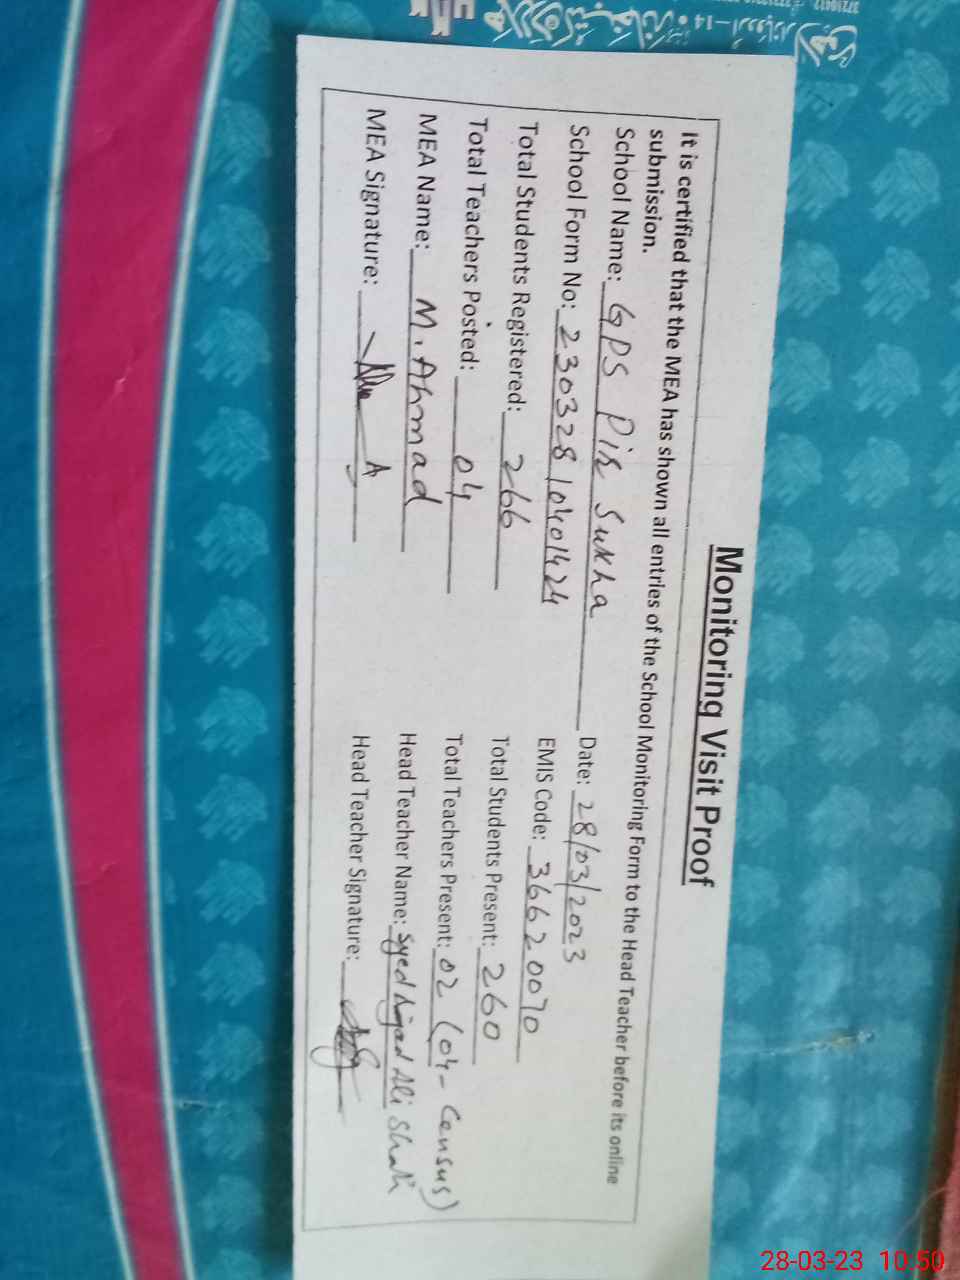 Monitoring Visit Proof
It is certified that the MEA has shown all entries of the School Monitoring Form to the Head Teacher before its online
submission.
School Name: GPS Pir Sukha Date: 28/03/2023
School Form No: 230328 10401424 EMIS Code: 36620070
Total Students Registered: 266 Total Students Present: 260
Total Teachers Posted: 04 Total Teachers Present: 02 (04 - Census)
MEA Name: M. Ahmad Head Teacher Name: Syed Amjad Ali Shah
MEA Signature: Head Teacher Signature:
28-03-23 10:50